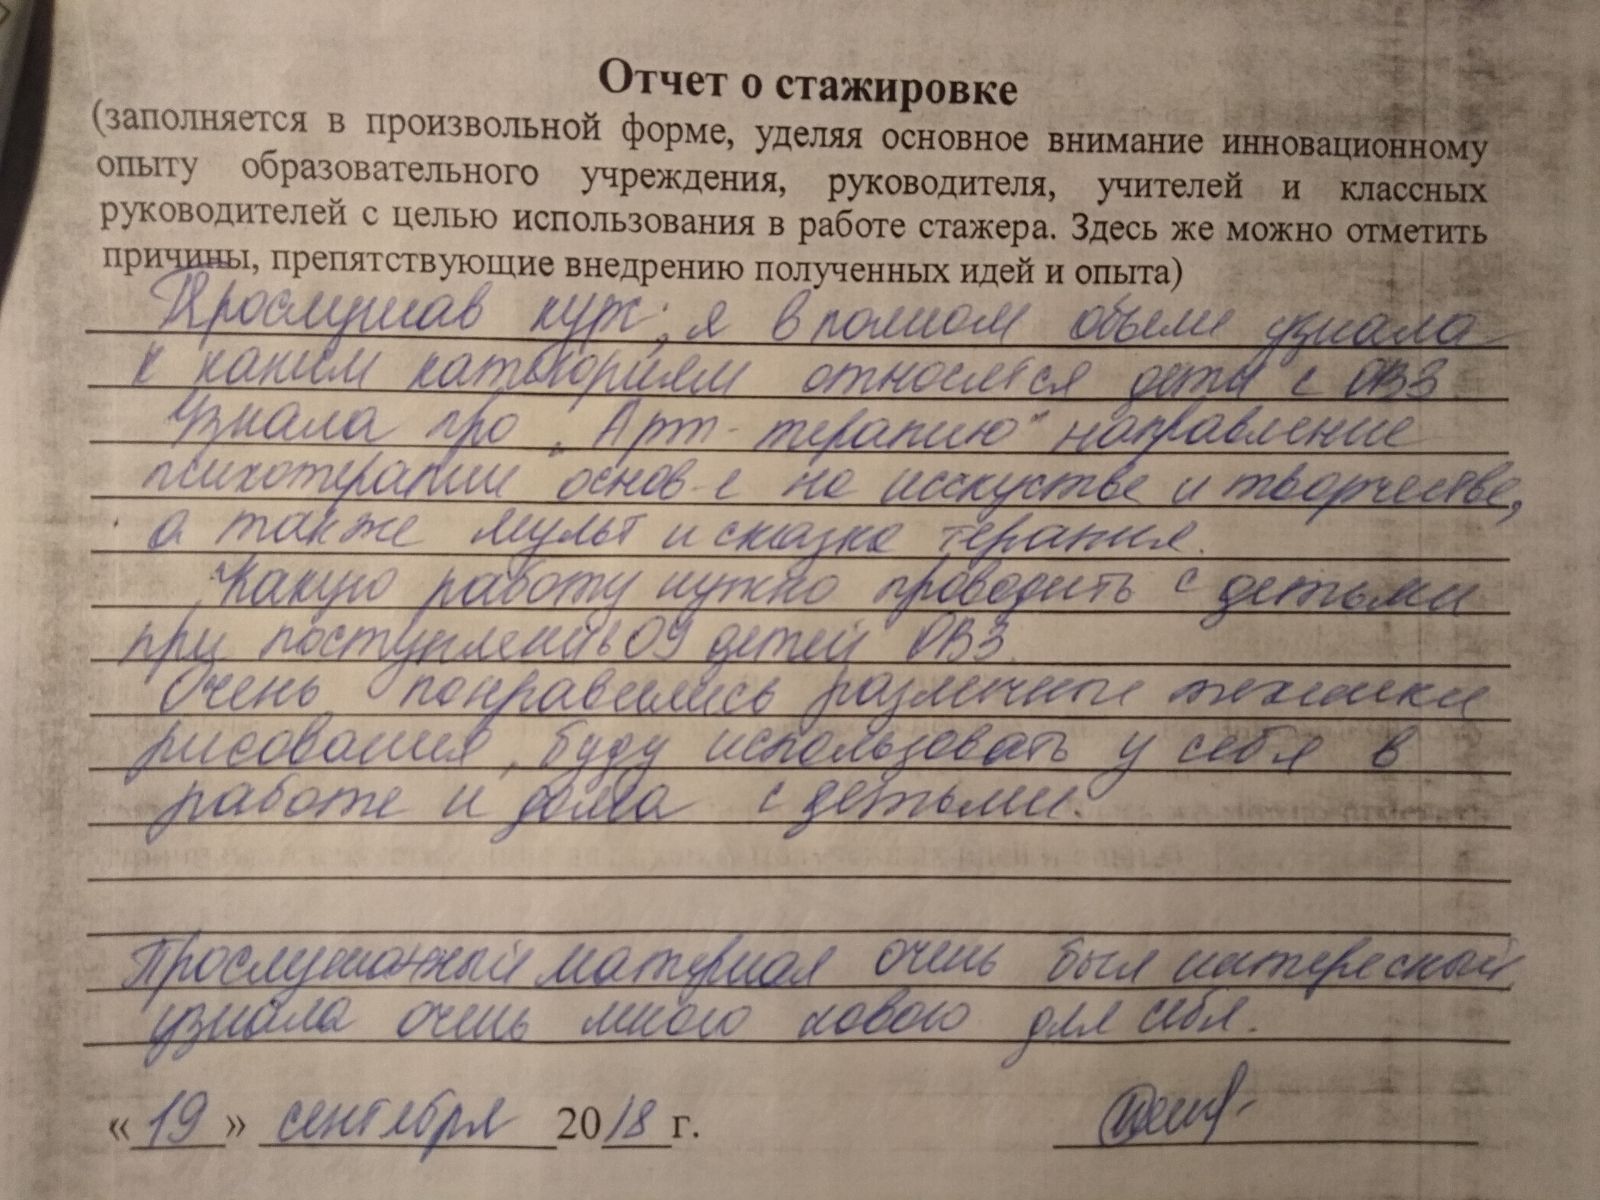 Отчет о стажировке
(заполняется в произвольной форме, уделяя основное внимание инновационному
опыту образовательного учреждения, руководителя, учителей и классных
руководителей с целью использования в работе стажера. Здесь же можно отметить
причины, препятствующие внедрению полученных идей и опыта)
Прослушав курс, я в полном объеме узнала
к каким категориям относятся дети с ОВЗ
Узнала про „Арт-терапию" направление
психотерапии основ-е на исскустве и творчестве,
а также мульт и сказка терапия.
Какую работу нужно проводить с детьми
при детей ОВЗ.
Очень понравились различные техники
рисования, буду использовать у себя в
работе и дома с детьми.
Прослушанный материал очень был интересный
узнала очень много нового для себя.
«19» сентября 2018 г.